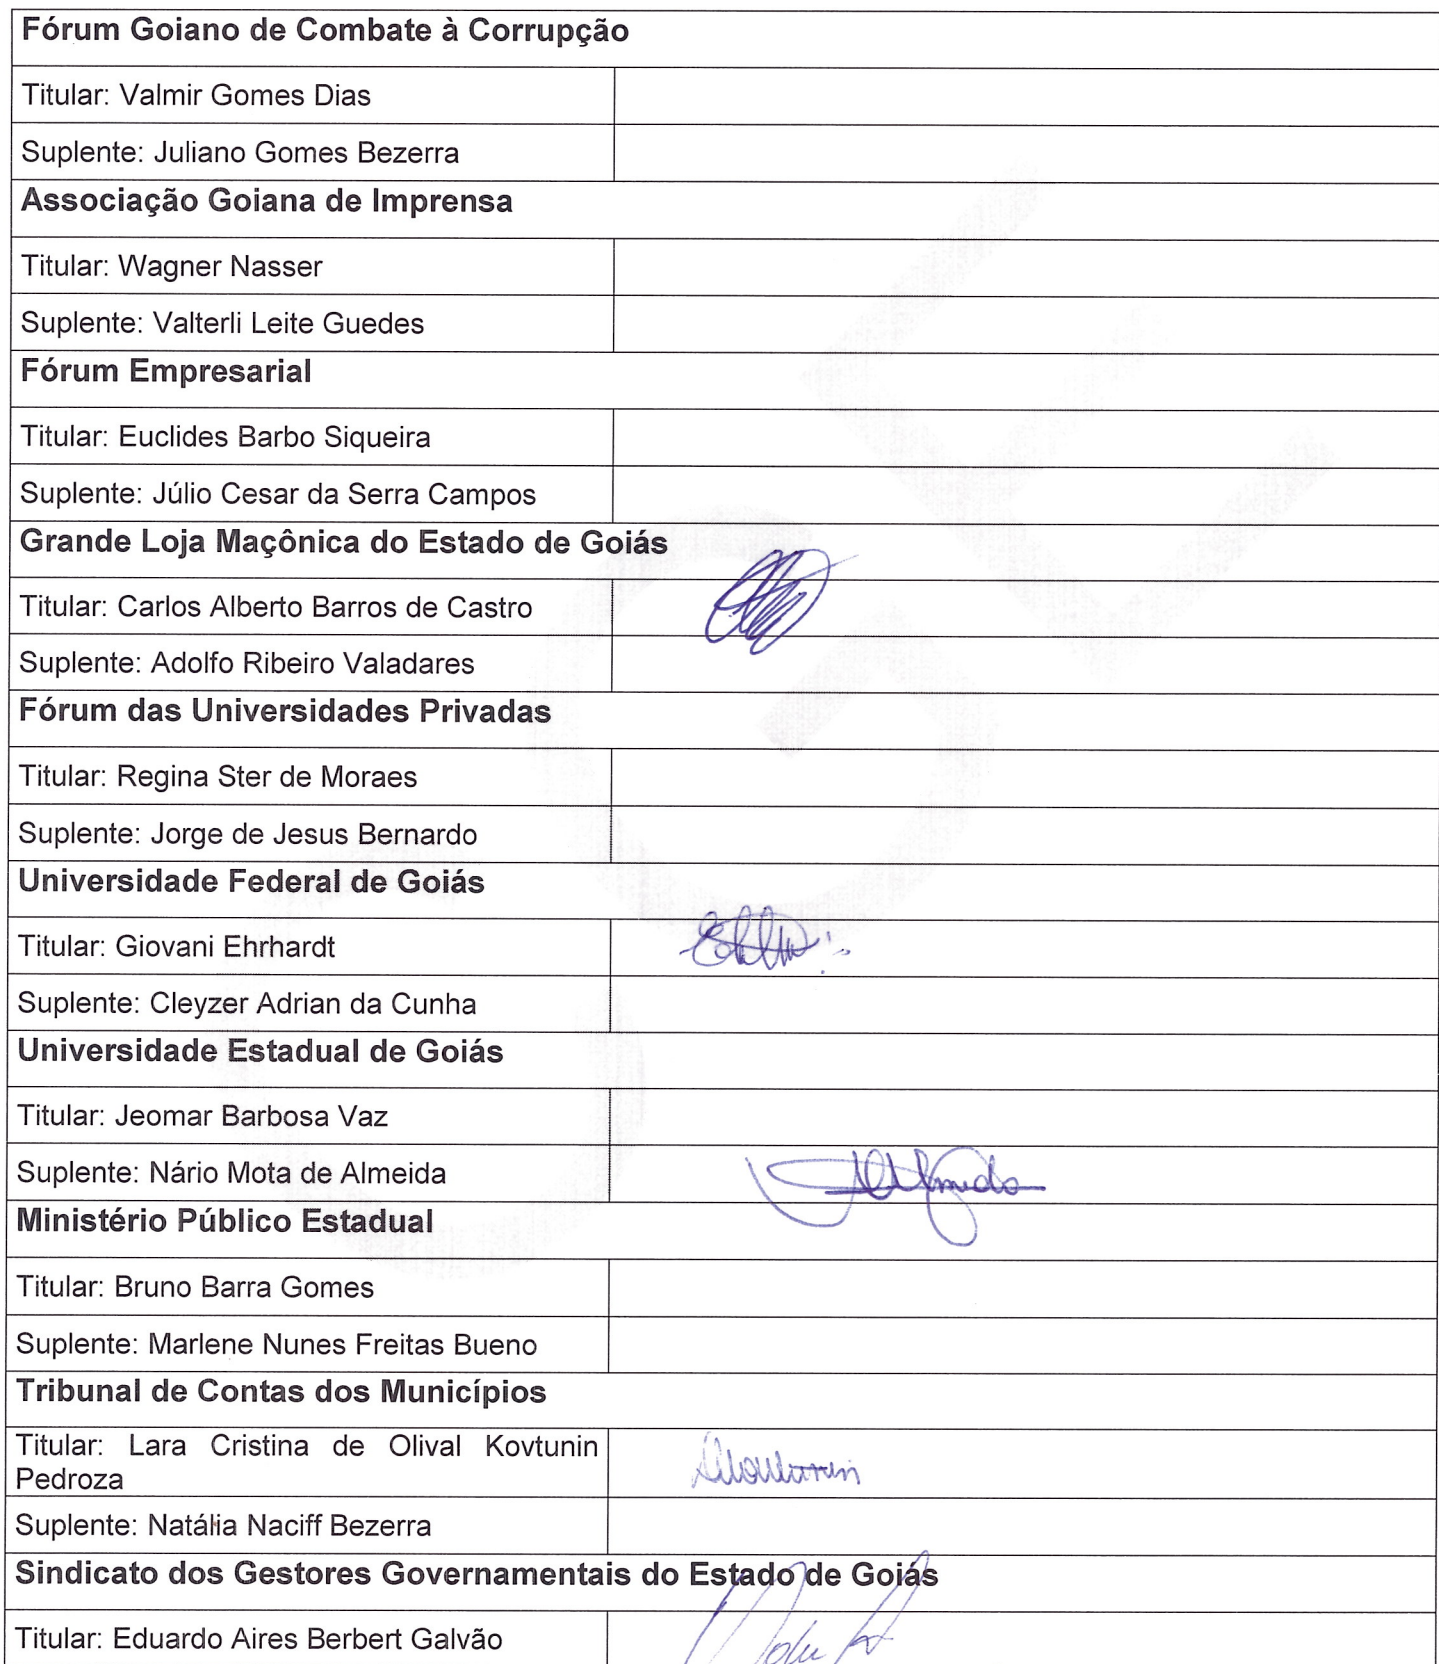 Fórum Goiano de Combate à Corrupção
Titular: Valmir Gomes Dias
Suplente: Juliano Gomes Bezerra
Associação Goiana de Imprensa
Titular: Wagner Nasser
Suplente: Valterli Leite Guedes
Fórum Empresarial
Titular: Euclides Barbo Siqueira
Suplente: Júlio Cesar da Serra Campos
Grande Loja Maçônica do Estado de Goiás
Titular: Carlos Alberto Barros de Castro
Suplente: Adolfo Ribeiro Valadares
Fórum das Universidades Privadas
Titular: Regina Ster de Moraes
Suplente: Jorge de Jesus Bernardo
Universidade Federal de Goiás
Titular: Giovani Ehrhardt
Suplente: Cleyzer Adrian da Cunha
Universidade Estadual de Goiás
Titular: Jeomar Barbosa Vaz
Suplente: Nário Mota de Almeida
Ministério Público Estadual
Titular: Bruno Barra Gomes
Suplente: Marlene Nunes Freitas Bueno
Tribunal de Contas dos Municípios
Titular: Lara Cristina de Olival Kovtunin
Pedroza
Suplente: Natália Naciff Bezerra
Sindicato dos Gestores Governamentais do Estado de Goiás
Titular: Eduardo Aires Berbert Galvão